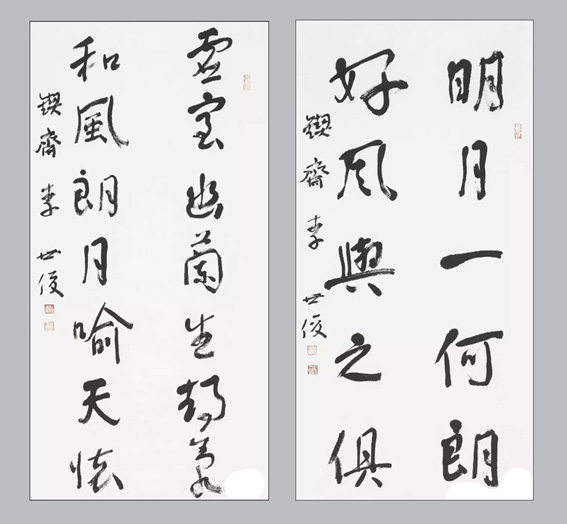 明月一何朗
好风與之俱
鍥齋李世俊
虚室幽蘭生静氣
和風朗月喻天懷
鍥齋李世俊